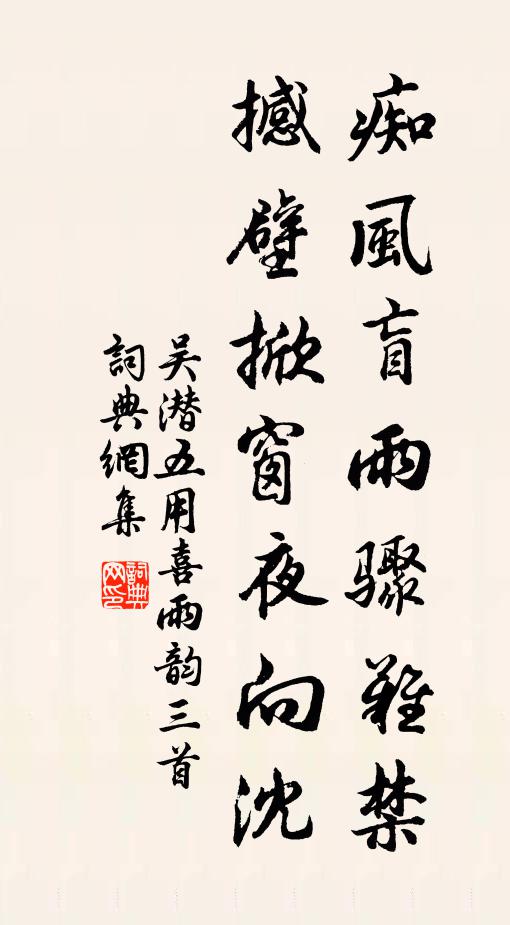 痴風盲雨驟難禁
撼壁掀窗夜向沈
吴潜五用喜雨韵三首
詞典網集
詞典网印